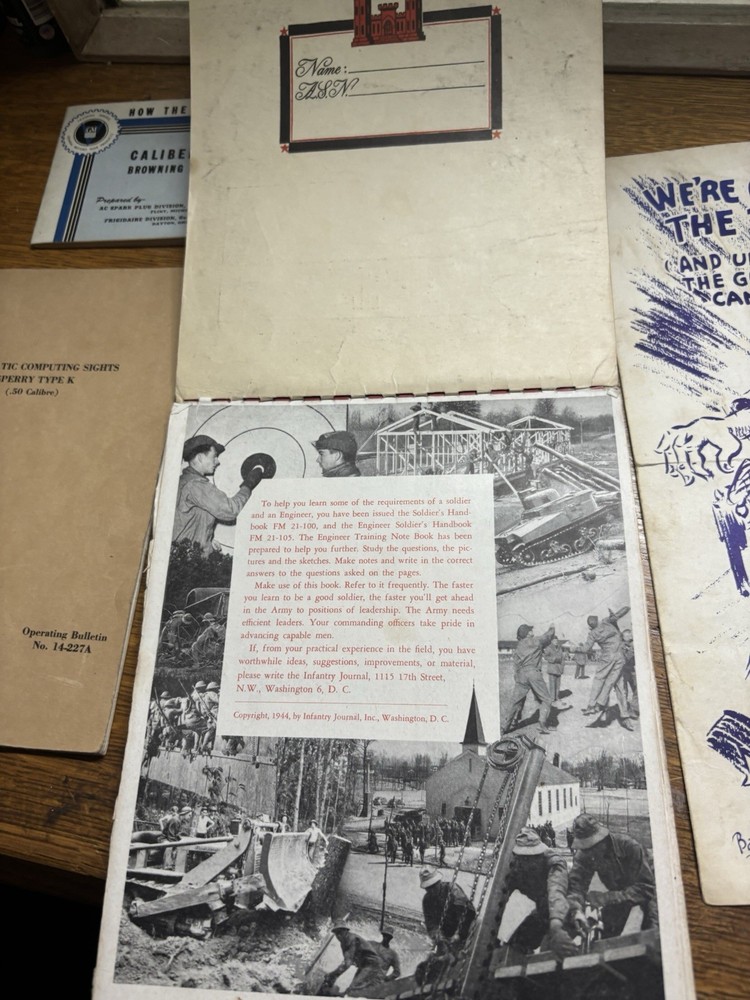 Name:
A.S.N.
HOW THE
CALIBE
BROWNING
Prepared by-
AC SPARK PLUG DIVISION,
FLINT,
FRIGIDAIRE DIVISION,
DAYTON,
GM
TIC COMPUTING SIGHTS
SPERRY TYPE K
(.50 Calibre)
Operating Bulletin
No. 14-227A
To help you learn some of the requirements of a soldier
and an Engineer, you have been issued the Soldier's Hand-
book FM 21-100, and the Engineer Soldier's Handbook
FM 21-105. The Engineer Training Note Book has been
prepared to help you further. Study the questions, the pic-
tures and the sketches. Make notes and write in the correct
answers to the questions asked on the pages.
Make use of this book. Refer to it frequently. The faster
you learn to be a good soldier, the faster you'll get ahead
in the Army to positions of leadership. The Army needs
efficient leaders. Your commanding officers take pride in
advancing capable men.
If, from your practical experience in the field, you have
worthwhile ideas, suggestions, improvements, or material,
please write the Infantry Journal, 1115 17th Street,
N.W., Washington 6, D. C.
Copyright, 1944, by Infantry Journal, Inc., Washington, D. C.
WE'RE
THE
(AND U
THE G
CAN